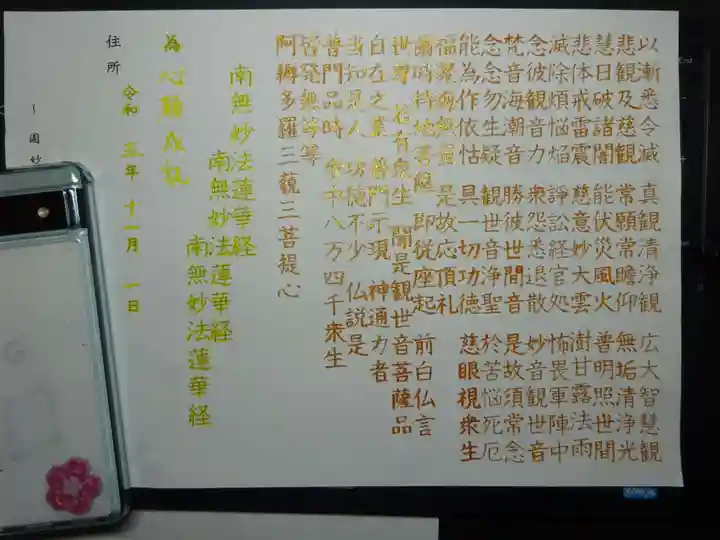 以漸悉令滅 真観清浄観 広大智慧観
悲観及慈観 常願常瞻仰 無垢清浄光
慧日破諸闇 能伏災風火 普明照世間
悲体戒雷震 慈意妙大雲 澍甘露法雨
滅除煩悩焔 諍訟経官処 怖畏軍陣中
念彼観音力 衆怨悉退散 妙音観世音
梵音海潮音 勝彼世間音 是故須常念
念念勿生疑 観世音浄聖 於苦悩死厄
能為作依怙 具一切功徳 慈眼視衆生
福聚海無量 是故応頂礼
爾時持地菩薩 即従座起 前白仏言
世尊 若有衆生 聞是観世音菩薩品
自在之業 普門示現 神通力者
当知是人 功徳不少 仏説是
普門品時 衆中八万四千衆生
皆発無等等
阿耨多羅三藐三菩提心
南無妙法蓮華経
南無妙法蓮華経
南無妙法蓮華経
為 心願成就
令和 三年 十一月 一日
住所